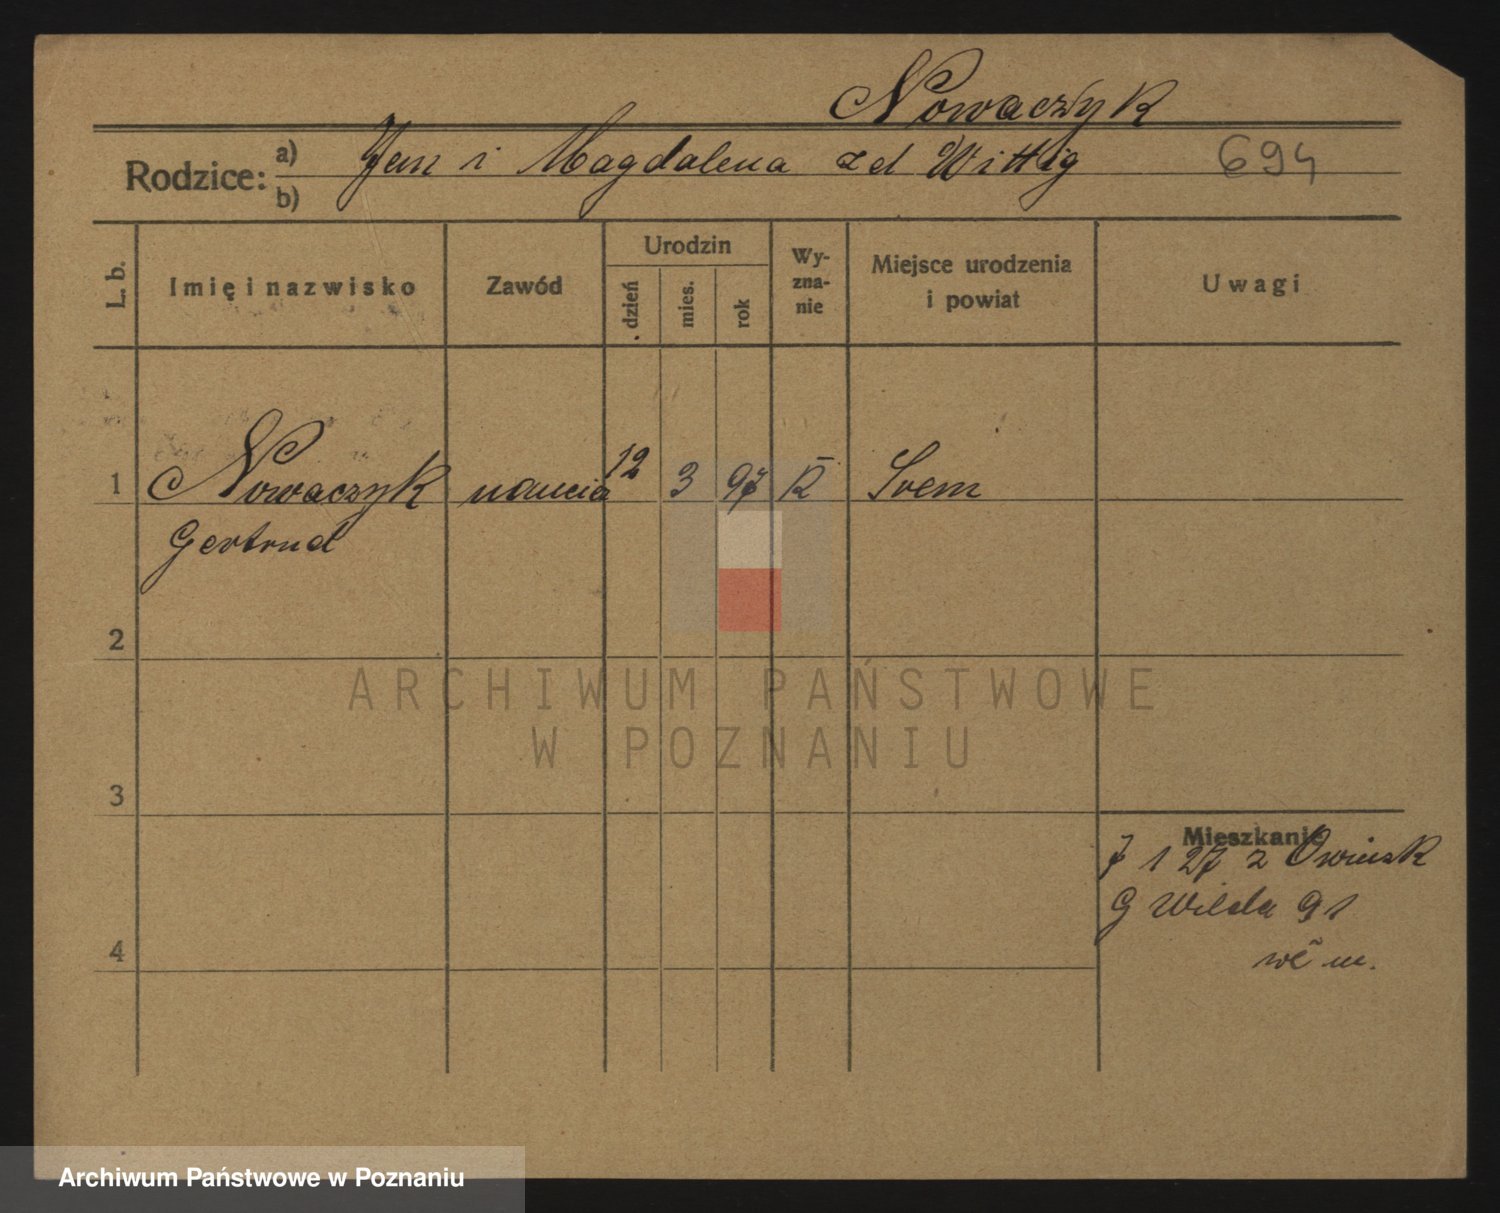 Nowaczyk
Rodzice: a) b) Jan i Magdalena zd Wittig 694
L. b. Imię i nazwisko Zawód Urodzin dzień mies. rok Wy-zna-nie Miejsce urodzenia i powiat Uwagi
1 Nowaczyk 12 3 97 K Srem
Gertrud
2
3
Mieszkanie
7 1 27 z Owinsk
G Wilda 91
4
ARCHIWUM PAŃSTWOWE
W POZNANIU
Archiwum Państwowe w Poznaniu